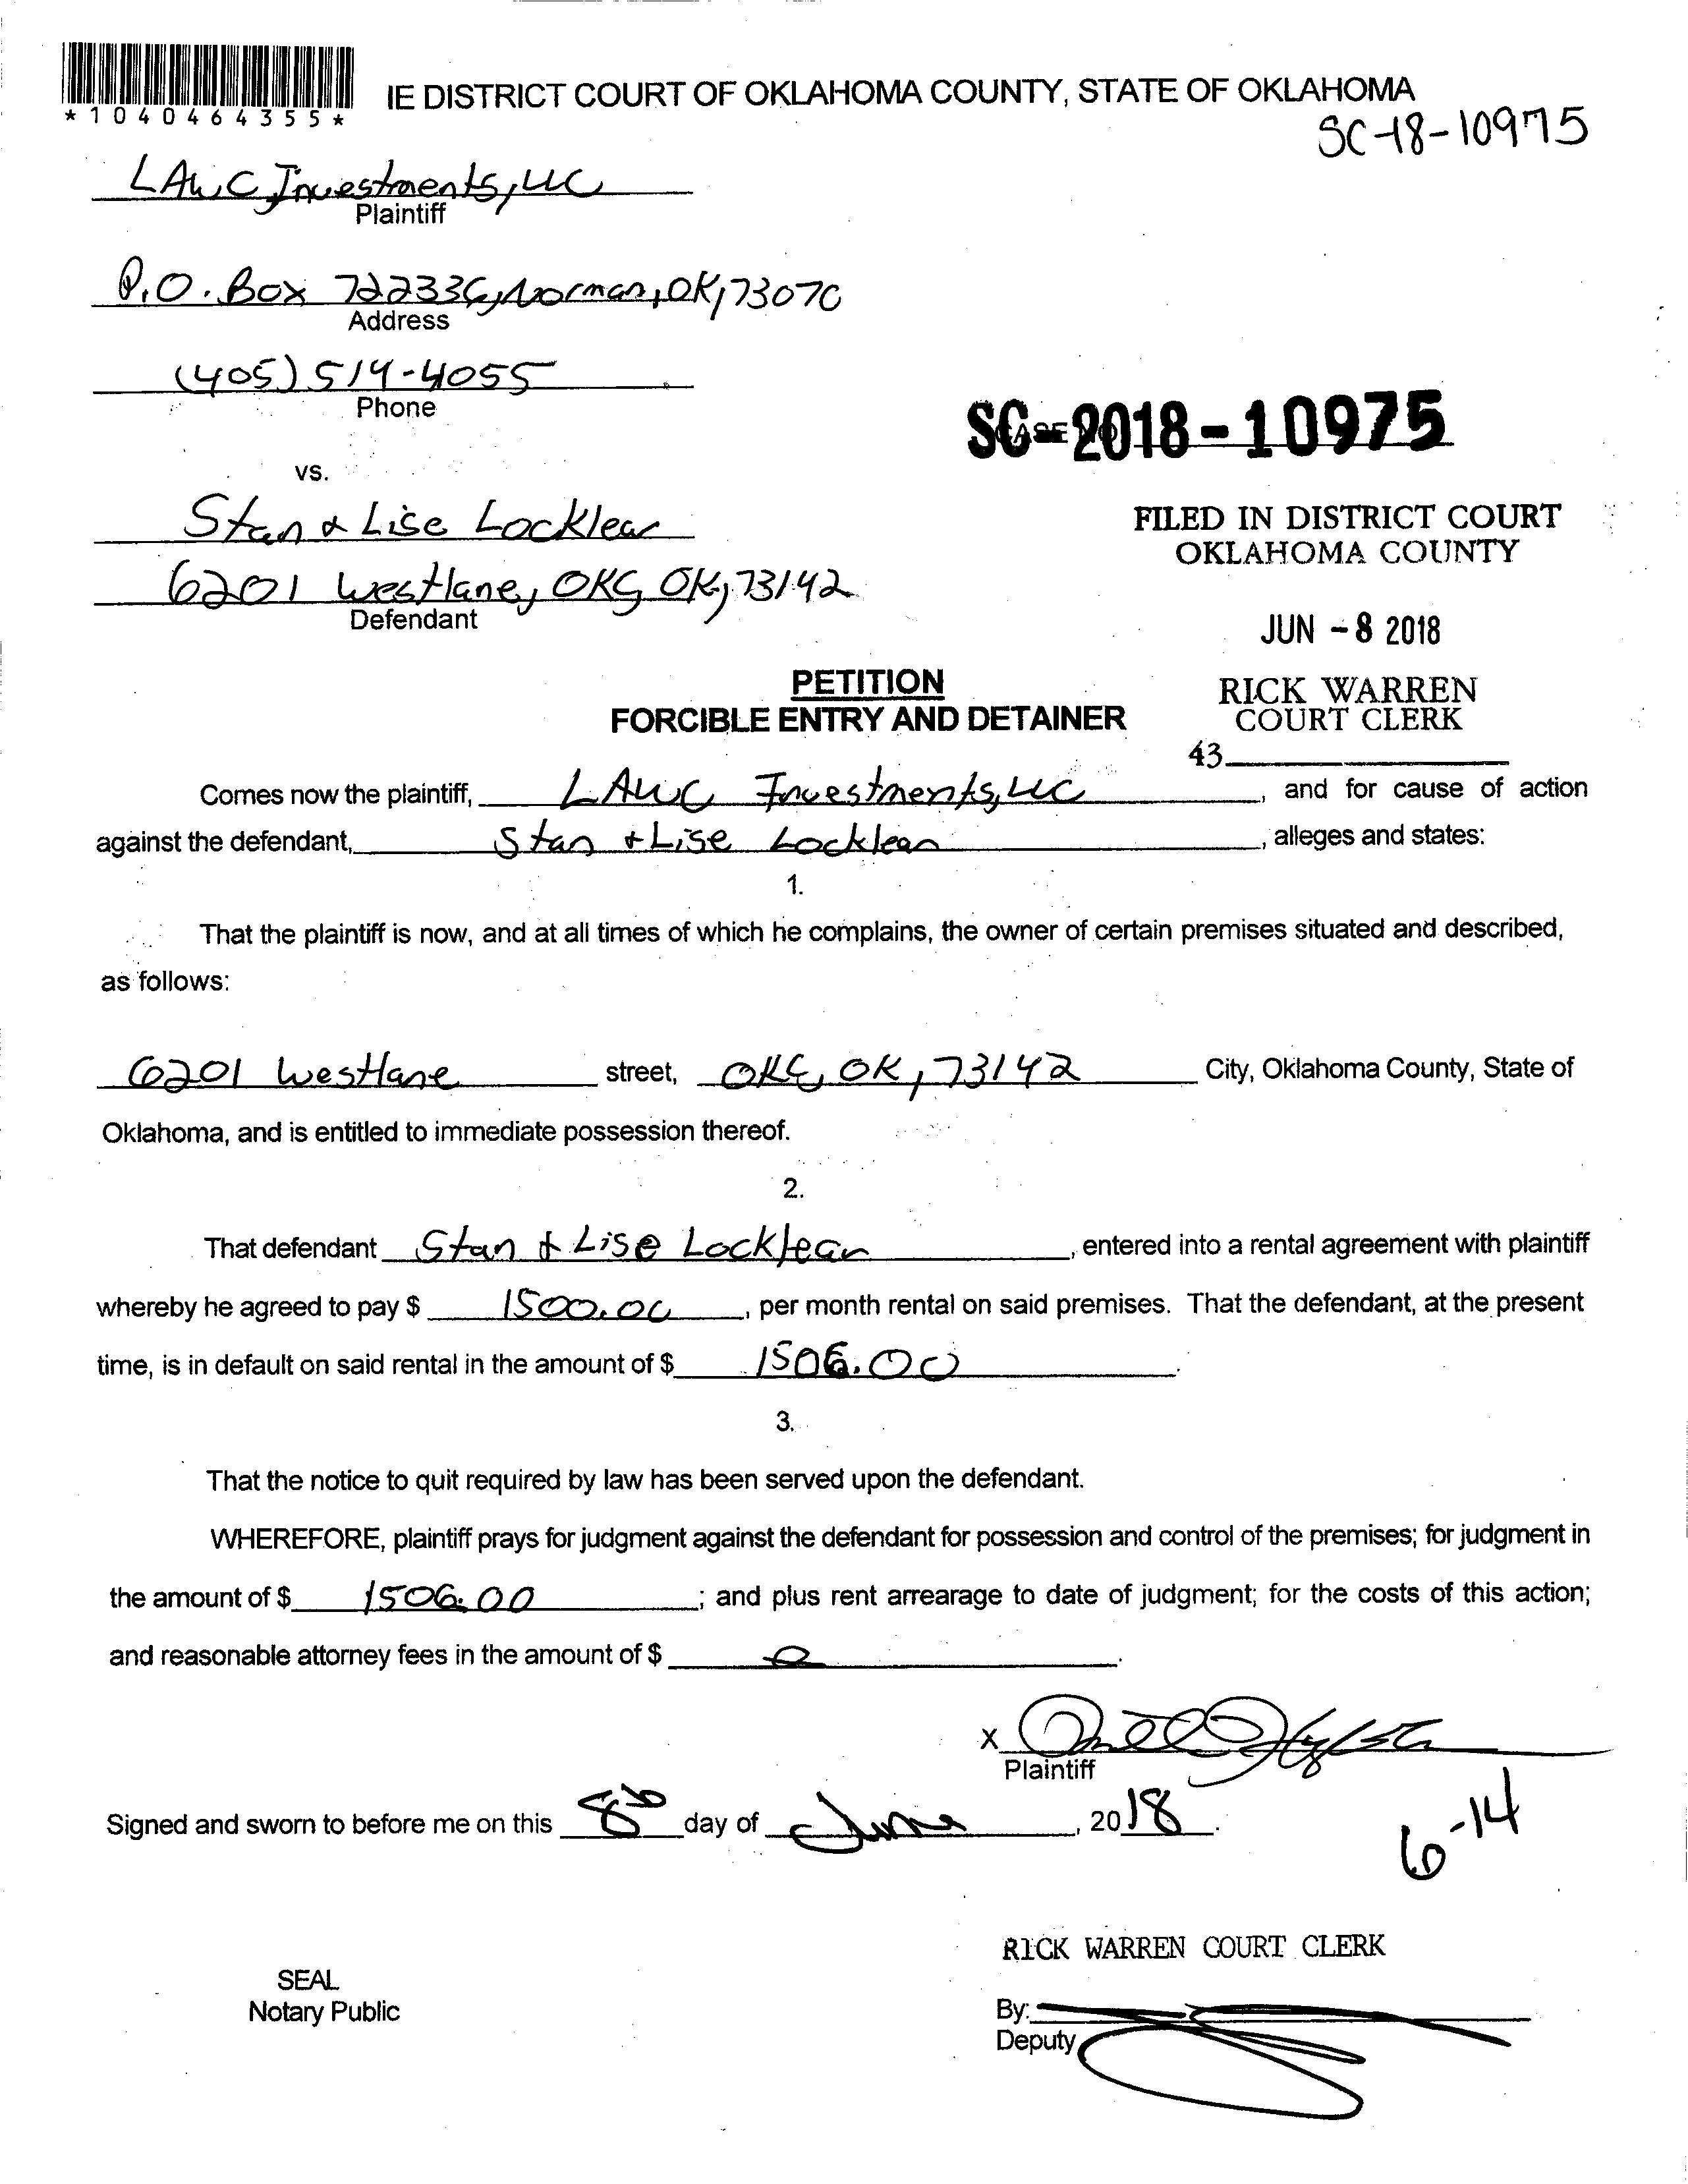 *1040464355*
IE DISTRICT COURT OF OKLAHOMA COUNTY, STATE OF OKLAHOMA
SC-18-10975
LAWC Investments, LLC
Plaintiff
P.O. Box 722336, Norman, OK, 73070
Address
(405) 514-4055
Phone
SC-2018-10975
vs.
Stan & Lise Locklear
FILED IN DISTRICT COURT
OKLAHOMA COUNTY
6201 Westlane, OKC, OK, 73142
Defendant
JUN - 8 2018
PETITION
FORCIBLE ENTRY AND DETAINER
RICK WARREN
COURT CLERK
43
Comes now the plaintiff, LAWC Investments, LLC, and for cause of action
against the defendant, Stan + Lise Locklear, alleges and states:
1.
That the plaintiff is now, and at all times of which he complains, the owner of certain premises situated and described,
as follows:
6201 Westlane street, OKC, OK, 73142 City, Oklahoma County, State of
Oklahoma, and is entitled to immediate possession thereof.
2.
That defendant Stan & Lise Locklear, entered into a rental agreement with plaintiff
whereby he agreed to pay $ 1500.00, per month rental on said premises. That the defendant, at the present
time, is in default on said rental in the amount of $ 1506.00.
3.
That the notice to quit required by law has been served upon the defendant.
WHEREFORE, plaintiff prays for judgment against the defendant for possession and control of the premises; for judgment in
the amount of $ 1506.00; and plus rent arrearage to date of judgment; for the costs of this action;
and reasonable attorney fees in the amount of $ 0.
X
Plaintiff
Signed and sworn to before me on this 8th day of June, 2018.
6-14
RICK WARREN COURT CLERK
SEAL
Notary Public
By:
Deputy